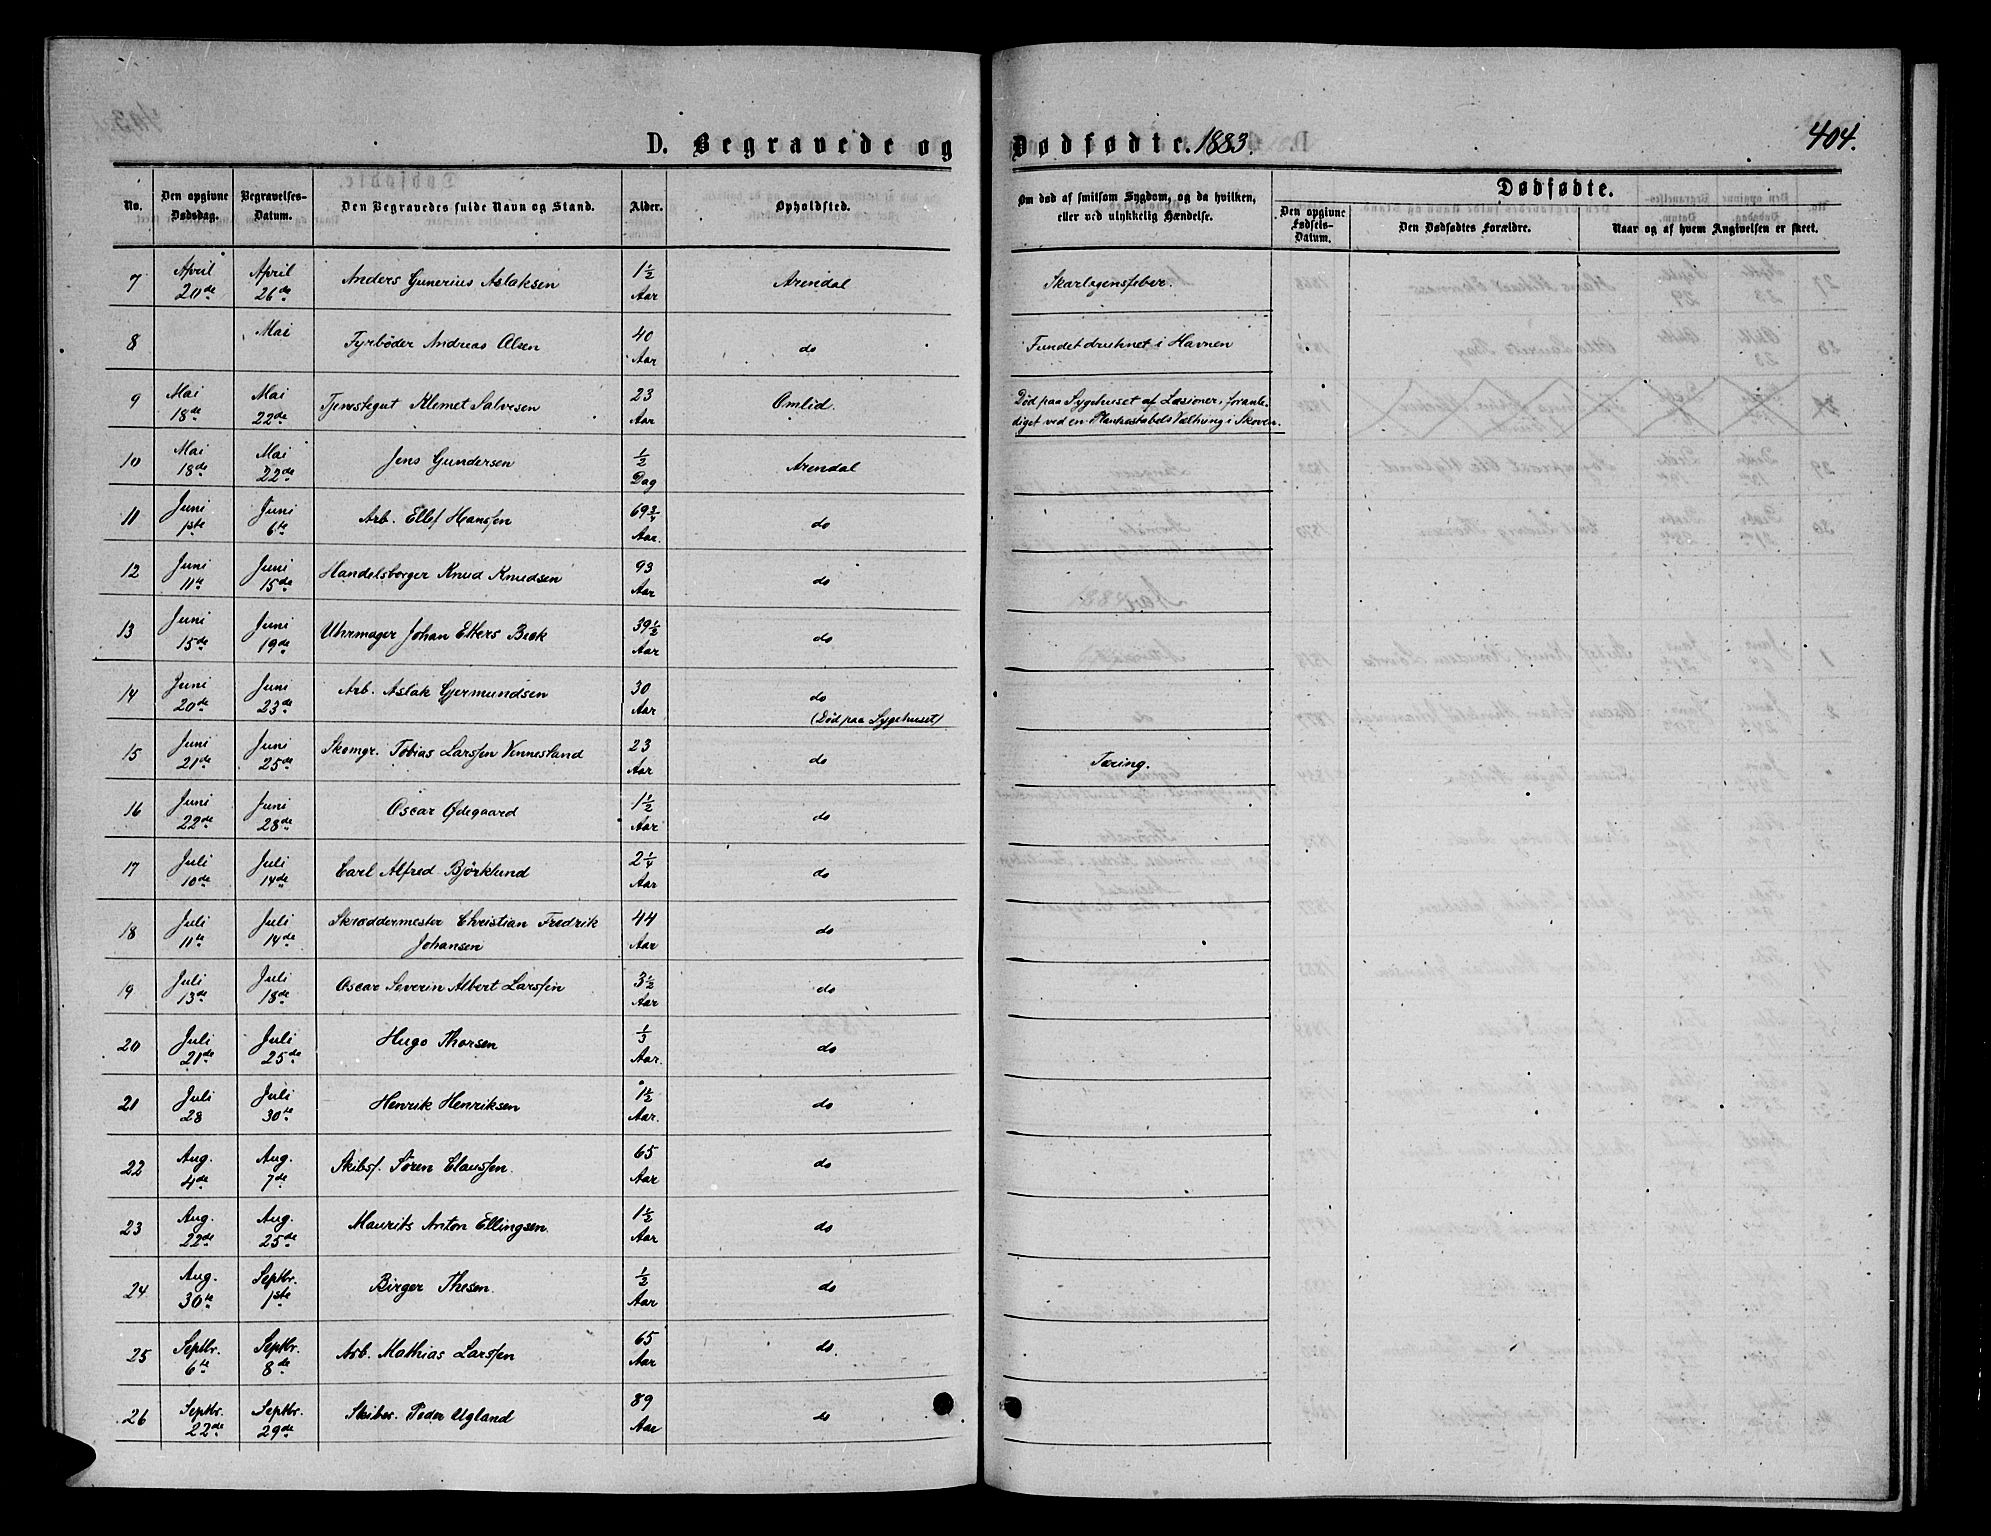 D. Begravede og Dødfødte. 1883. 404.
No. Den opgivne Dødsdag. Begravelses-Datum. Den Begravedes fulde Navn og Stand. Alder. Opholdsted. Om død af smitsom Sygdom, og da hvilken, eller ved ulykkelig Hændelse. Dødfødte.
Den opgivne Fødsels-Datum. Den Dødfødtes Forældre. Naar og af hvem Angivelsen er skeet.
7 April 20de April 26de Anders Gunerius Aslaksen 1½ Aar Arendal Skarlagensfeber.
8 Mai Fyrbøder Andreas Olsen 40 Aar do Fundet druknet i Havnen
9 Mai 18de Mai 22de Tjenestegut Klemet Salvesen 23 Aar Omlid. Død paa Sygehuset af Læsioner, foranle-
diget ved en Plankestabels Væltning i Skoven.
10 Mai 18de Mai 22de Jens Gundersen ½ Dag Arendal
11 Juni 1ste Juni 6te Arb. Ellef Hanssen 69¾ Aar. do
12 Juni 11te Juni 15de Handelsborger Knud Knudsen 93 Aar do
13 Juni 15de Juni 19de Uhrmager Johan Ehlers Beck 39½ Aar do
14 Juni 20de Juni 23de Arb. Aslak Gjermundsen 30 Aar do
(Død paa Sygehuset)
15 Juni 21de Juni 25de Skomgr. Tobias Larssen Vennesland 23 Aar do Tæring.
16 Juni 22de Juni 28de Oscar Ødegaard 1½ Aar do
17 Juli 10de Juli 14de Carl Alfred Björklund 2¼ Aar do
18 Juli 11te Juli 14de Skræddermester Christian Fredrik Johansen 44 Aar do
19 Juli 13de Juli 18de Oscar Severin Albert Larssen 3½ Aar do
20 Juli 21de Juli 25de Hugo Thorsen ⅓ Aar. do
21 Juli 28 Juli 30te Henrik Henriksen 1½ Aar. do
22 Aug. 4de Aug. 7de Skibsf. Søren Claussen. 65 Aar do
23 Aug. 22de Aug. 25de Maurits Anton Ellingsen. 1½ Aar do
24 Aug. 30te Septbr. 1ste Birger Thesen. ½ Aar do
25 Septbr. 6te Septbr. 8de Arb. Mathias Larssen 65 Aar do.
26 Septbr. 22de Septbr. 29de Skibsr. Peder Ugland 89 Aar do